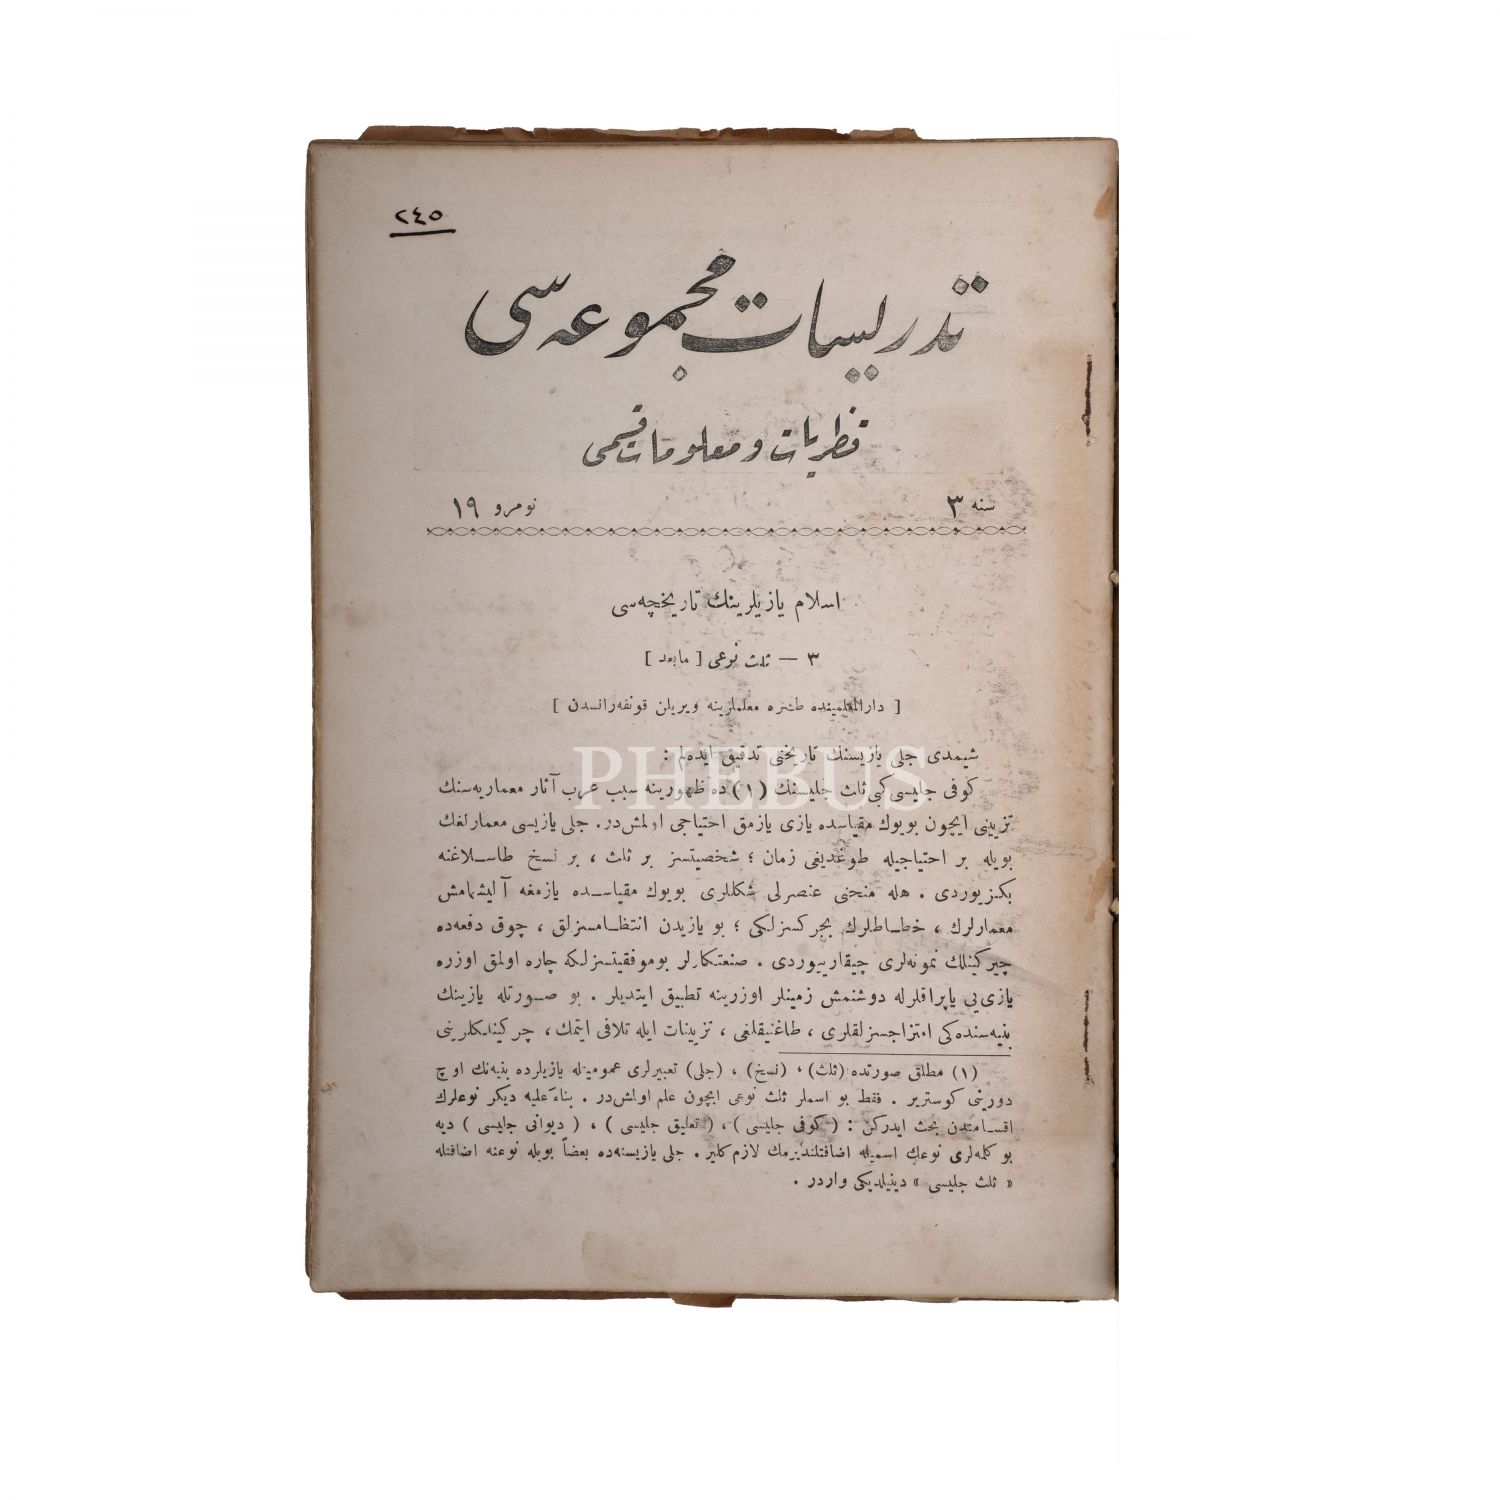 ٢٤٥
تدريسات مجموعه‌سى
نظريات و معلومات قسمى
سنه ٣
نومرو ١٩
اسلام يازيلرينك تاريخچه‌سى
٣ — ثلث نوعى [ مابعد ]
[ دارالمعلمينده طشره معلملرينه ويريلن قونفه‌رانسدن ]
شيمدى جلى يازيسنك تاريخنى تدقيق ايده‌لم :
كوفى جليسى كبى ثلث جليسنك (١) ده ظهورينه سبب عرب آثار معماريه‌سنك
تزيينى ايچون بويوك مقياسده يازى يازمق احتياجى اولمش‌در. جلى يازيسى معمارلغك
بويله بر احتياجيله طوغديغى زمان ؛ شخصيتسز بر ثلث ، بر نسخ طاسـلاغنه
بكزيوردى . هله منحنى عنصرلى شكللرى بويوك مقياسـده يازمغه آليشمامش
معمارلرك ، خطـاطلرك بجركسزلكى ؛ بو يازيدن انتظـامسزلق ، چوق دفعه‌ده
چيركينلك نمونه‌لرى چيقارييوردى . صنعتكارلر بوموفقيتسزلكه چاره اولمق اوزره
يازى‌يى ياپراقلرله دوشنمش زمينلر اوزرينه تطبيق ايتديلر . بو صـورتله يازينك
بنيه‌سنده‌كى امتزاجسزلقلرى ، طاغنيقلغى ، تزيينات ايله تلافى ايتمك ، چركينـلكلرينى
(١) مطلق صورتده (ثلث) ، (نسخ) ، (جلى) تعبيرلرى عموميتله يازيلرده بنيه‌نك اوچ
دورينى كوسترير . فقط بو اسملر ثلث نوعى ايچون علم اولمش‌در . بناءً عليه ديكر نوعلرك
اقسـامندن بحث ايدركن : ( كوفى جليسى ) ، ( تعليق جليسى ) ، ( ديوانى جليسى ) ديه
بو كلمه‌لرى نوعك اسميله اضافتلنديرمك لازم كلير . جلى يازيسنه‌ده بعضاً بويله نوعنه اضافتله
« ثلث جليسى » دينيلديكى واردر .
PHEBUS